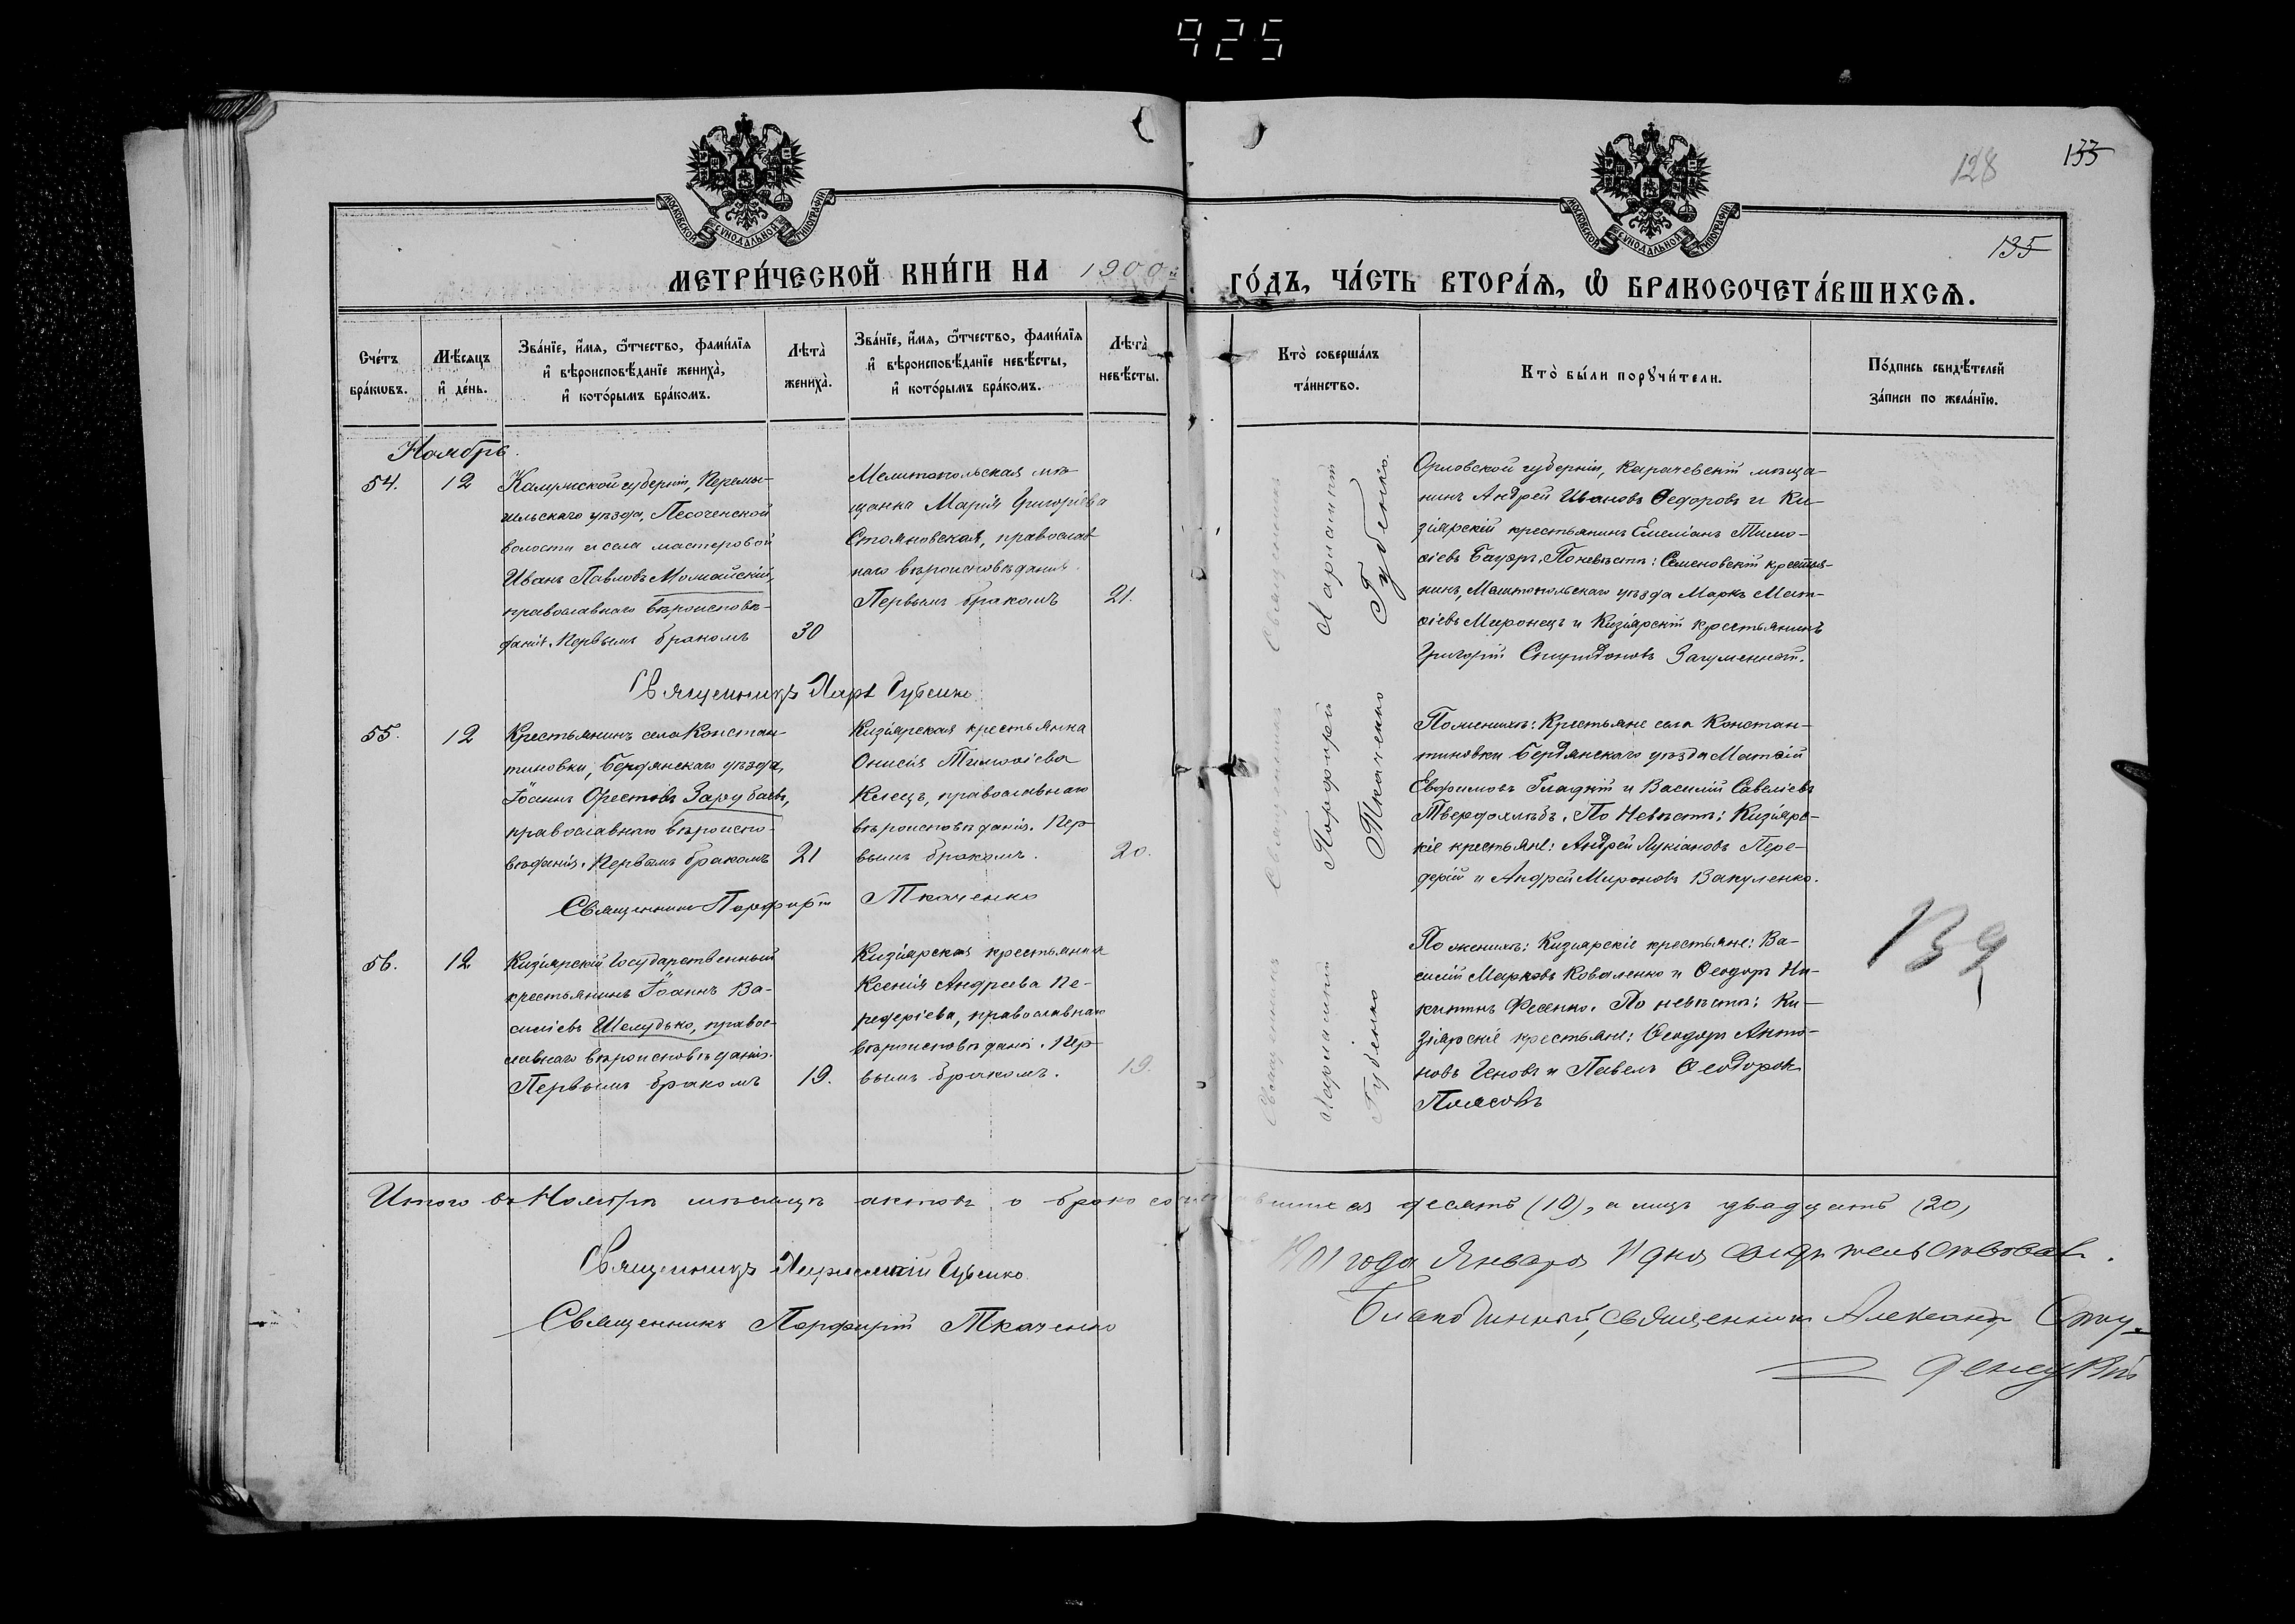 925
128
133
135
МОСКОВСКОЙ СѴНОДАЛЬНОЙ ТИПОГРАФІИ
МОСКОВСКОЙ СѴНОДАЛЬНОЙ ТИПОГРАФІИ
МЕТРИ́ЧЕСКОЙ КНИ́ГИ НА 1900й
ГО́ДЪ, ЧА́СТЬ ВТОРА́Ѧ, Ѽ БРАКОСОЧЕТА́ВШИХСѦ.
Сче́тъ бра́кѡвъ.
Мѣ́сяцъ и҆ де́нь.
Зва́нїе, и҆́мя, ѻ҆́тчество, фами́лїя и҆ вѣроисповѣ́данїе жениха̀, и҆ кото́рымъ бра́комъ.
Лѣта̀ жениха̀.
Зва́нїе, и҆́мя, ѻ҆́тчество, фами́лїя и҆ вѣроисповѣ́данїе невѣ́сты, и҆ кото́рымъ бра́комъ.
Лѣта̀ невѣ́сты.
Кто̀ соверша́лъ та́инство.
Кто̀ бы́ли порꙋчи́тели.
По́дпись свидѣ́телей за́писи по жела́нїю.
Ноябрь.
54.
12
Калужской губерніи, Перемы-
шльскаго уѣзда, Песоченской
волости и села мастеровой
Иванъ Павловъ Можайскій,
православнаго вѣроисповѣ-
данія. Первымъ бракомъ
30
Мелитопольская мѣ-
щанка Марія Григоріева
Стояновская, православ-
наго вѣроисповѣданія.
Первымъ бракомъ
21.
Священникъ Харлампій Губенко.
Орловской губерніи, Карачевскій мѣща-
нинъ Андрей Ивановъ Ѳедоровъ и Ки-
зіярскій крестьянинъ Емеліанъ Тимо-
ѳіевъ Бауръ. По невѣстѣ: Семеновскій крестья-
нинъ, Мелитопольскаго уѣзда Маркъ Мат-
ѳіевъ Миронецъ и Кизіярскій крестьянинъ
Григорій Спиридоновъ Загуменный.
Священникъ Харл. Губенко
55.
12
Крестьянинъ села Констан-
тиновки, Бердянскаго уѣзда,
Іоаннъ Орестовъ Зарубаевъ,
православнаго вѣроиспо-
вѣданія. Первымъ бракомъ
21
Кизіярская крестьянка
Онисія Тимоѳіева
Клецъ, православнаго
вѣроисповѣданія. Пер-
вымъ бракомъ.
20.
Священникъ Порфирій Ткаченко
По женихѣ: Крестьяне села Констан-
тиновки Бердянскаго уѣзда Матѳій
Евфимовъ Гладкій и Василій Савеліевъ
Твердохлѣбъ. По Невѣстѣ: Кизіярс-
кіе крестьяне: Андрей Лукіановъ Пере-
дерій и Андрей Мироновъ Вакуленко.
Священникъ Порфирій Ткаченко
56.
12
Кизіярскій Государственный
крестьянинъ Іоаннъ Ва-
силіевъ Шелудько, правос-
лавнаго вѣроисповѣданія.
Первымъ бракомъ
19.
Кизіярская крестьянка
Ксенія Андреева Пе-
редеріева, православнаго
вѣроисповѣданія. Пер-
вымъ бракомъ.
19.
Священникъ Харлампій Губенко
По женихѣ: Кизіярскіе крестьяне: Ва-
силій Марковъ Коваленко и Ѳеодоръ Ни-
китинъ Фесенко. По невѣстѣ: Ки-
зіярскіе крестьяне: Ѳеодоръ Анто-
новъ и Павелъ Ѳеодоровъ
139
Итого въ Ноябрѣ мѣсяцѣ актовъ о бракосочетавшихся десять (10), а лицъ двадцать (20)
Священникъ Харлампій Губенко.
Священникъ Порфирій Ткаченко
1901 года Января 11 дня свидѣтельствовалъ.
Благочинный, священникъ Александръ Сту-
денецкій